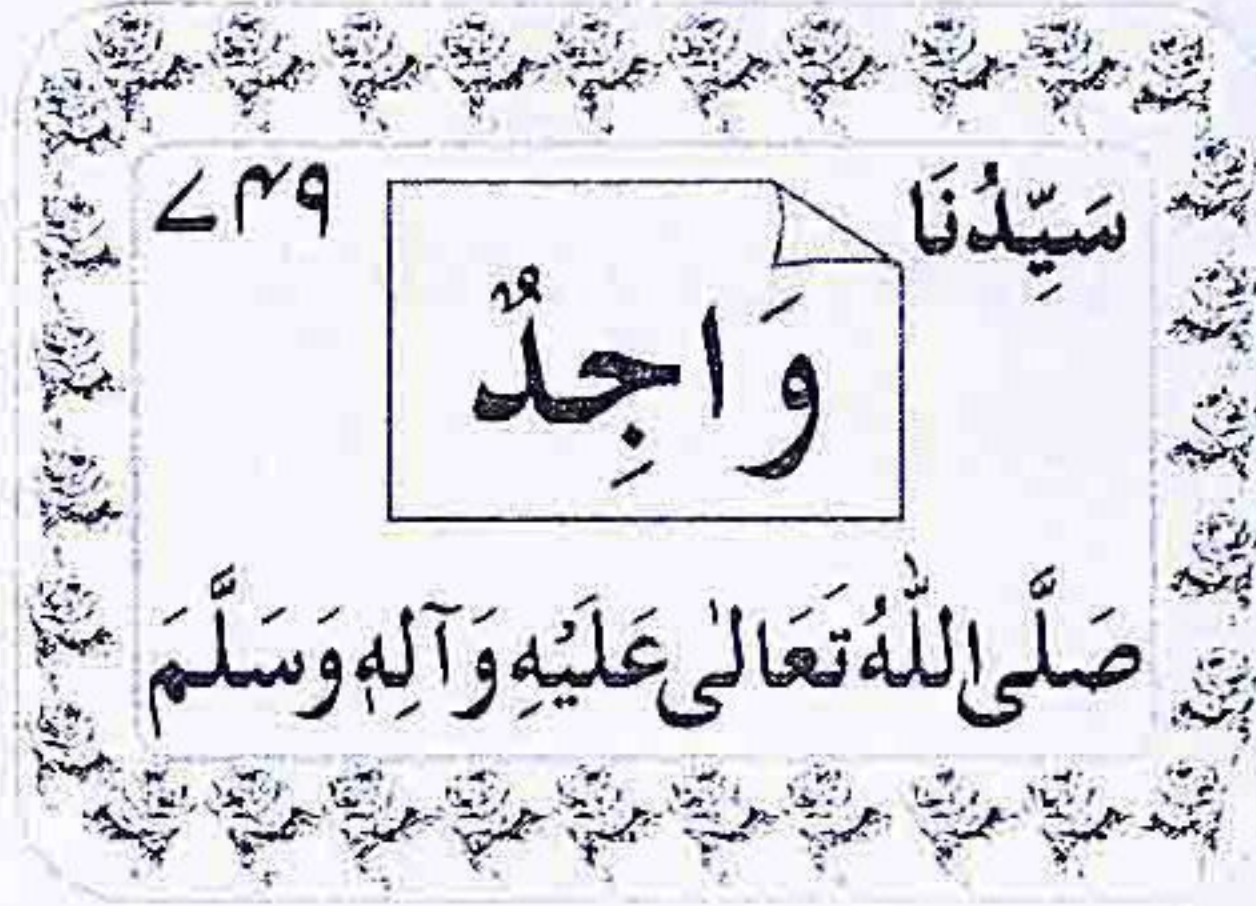 سَيِّدُنَا ۷۴۹
وَاجِدٌ
صَلَّی اللّٰهُ تَعَالٰی عَلَیْهِ وَآلِهٖ وَسَلَّمَ